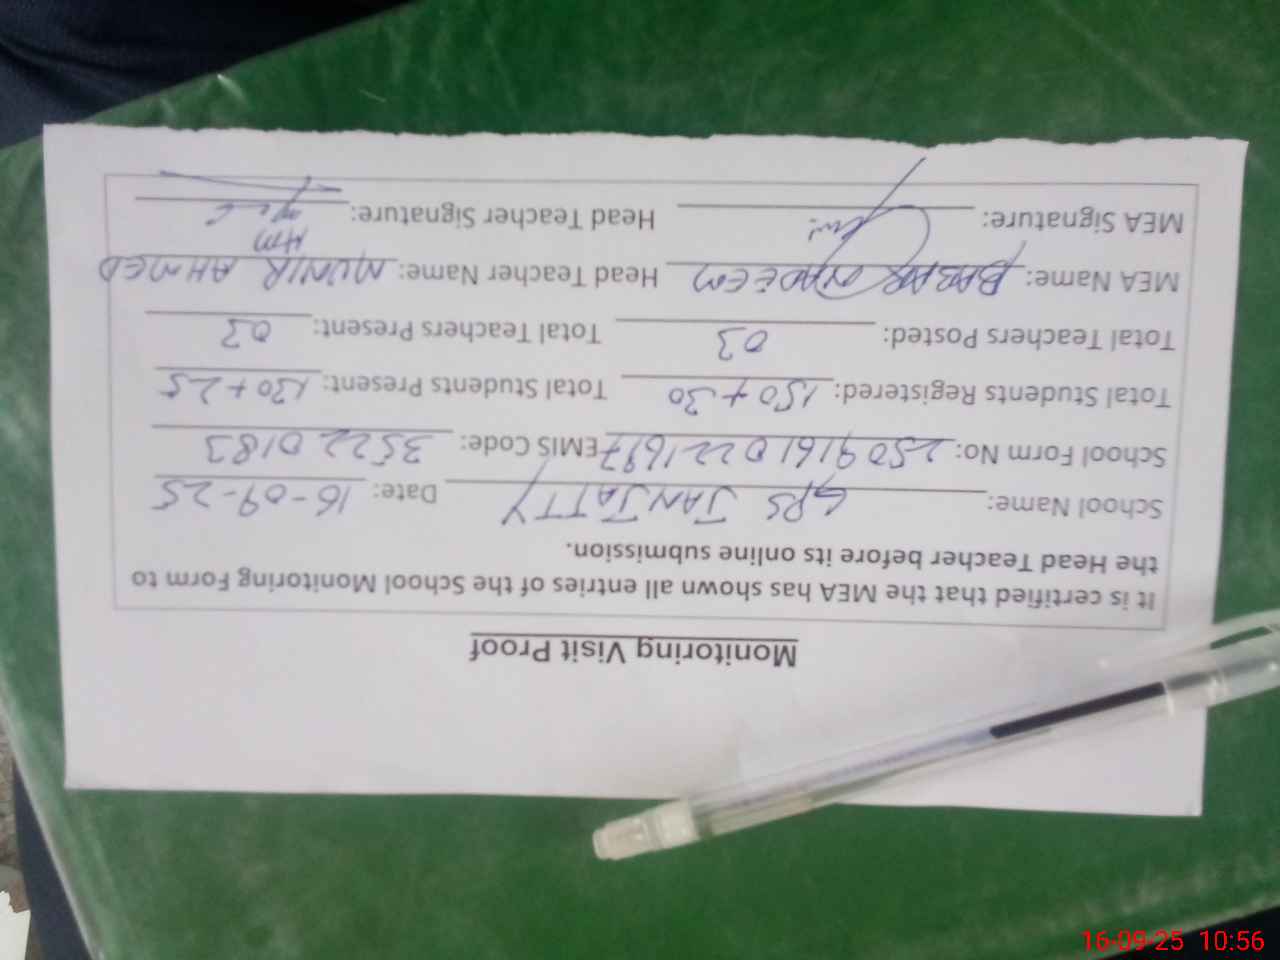 Monitoring Visit Proof
It is certified that the MEA has shown all entries of the School Monitoring Form to
the Head Teacher before its online submission.
School Name: GPS JANJATTY Date: 16-09-25
School Form No: 25091610221697 EMIS Code: 35220183
Total Students Registered: 150+30 Total Students Present: 130+25
Total Teachers Posted: 03 Total Teachers Present: 03
MEA Name: BABAR NADEEM Head Teacher Name: MUNIR AHMED
MEA Signature: Head Teacher Signature:
HM
16-09-25 10:56